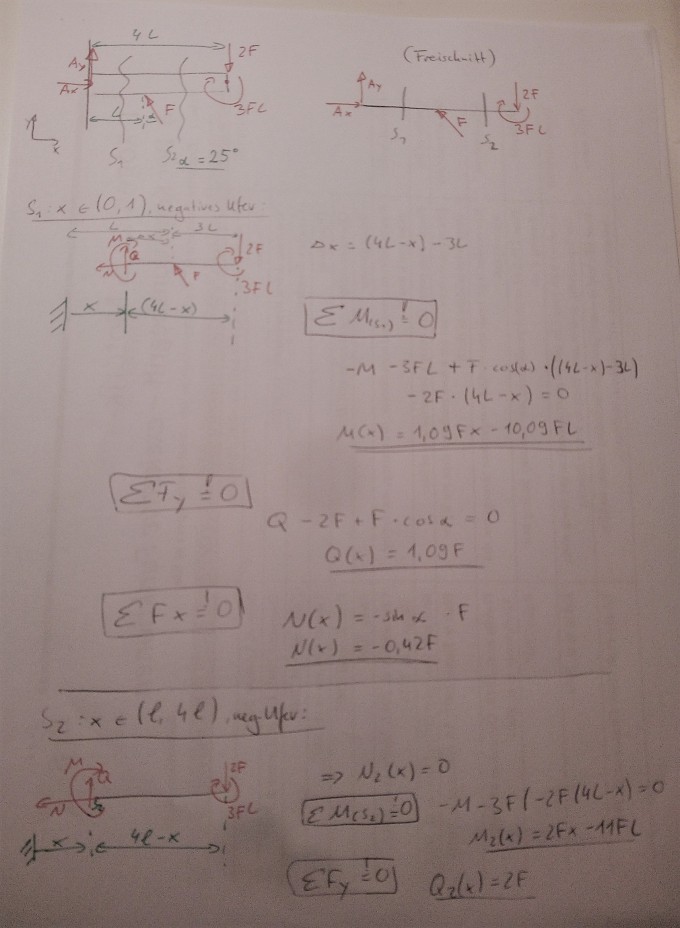 4L
2F
Ay
Ax
F
3FL
L
y
x
S₁
S₂
α = 25°
(Freischnitt)
Ay
Ax
2F
F
3FL
S₁
S₂
S₁ : x ∈ (0, 1), negatives Ufer:
L
3L
M
Q
N
2F
F
3FL
x
(4L-x)
Δx = (4L-x) - 3L
ΣM(S₁) != 0
-M - 3FL + F · cos(α) · ((4L-x) - 3L)
- 2F · (4L-x) = 0
M(x) = 1,09Fx - 10,09FL
ΣFy != 0
Q - 2F + F · cosα = 0
Q(x) = 1,09F
ΣFx != 0
N(x) = -sinα · F
N(x) = -0,42F
S₂ : x ∈ (l, 4l), neg. Ufer:
M
Q
N
2F
3FL
x
4l-x
=> N₂(x) = 0
ΣM(S₂) != 0
-M - 3Fl - 2F(4L-x) = 0
M₂(x) = 2Fx - 11FL
ΣFy != 0
Q₂(x) = 2F